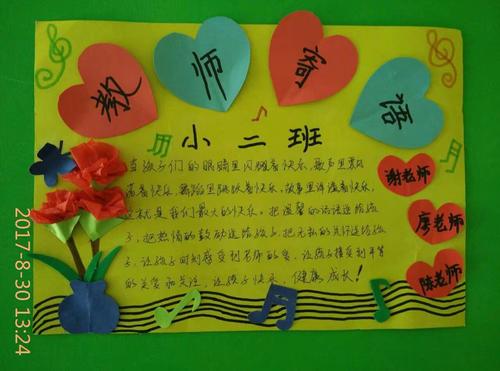 教师寄语
小二班
当孩子们的眼睛里闪耀着快乐,歌声里飘
荡着快乐,舞蹈里跳跃着快乐,故事里讲演着快乐,
这就是我们最大的快乐。把温馨的话语送给孩
子,把热情的鼓励送给孩子,把无私的关行送给孩
子,让孩子时刻感受到老师的爱,让孩子接受到平等
的关爱和关注,让孩子快乐,健康成长!
谢老师
廖老师
陈老师
2017-8-30 13:24